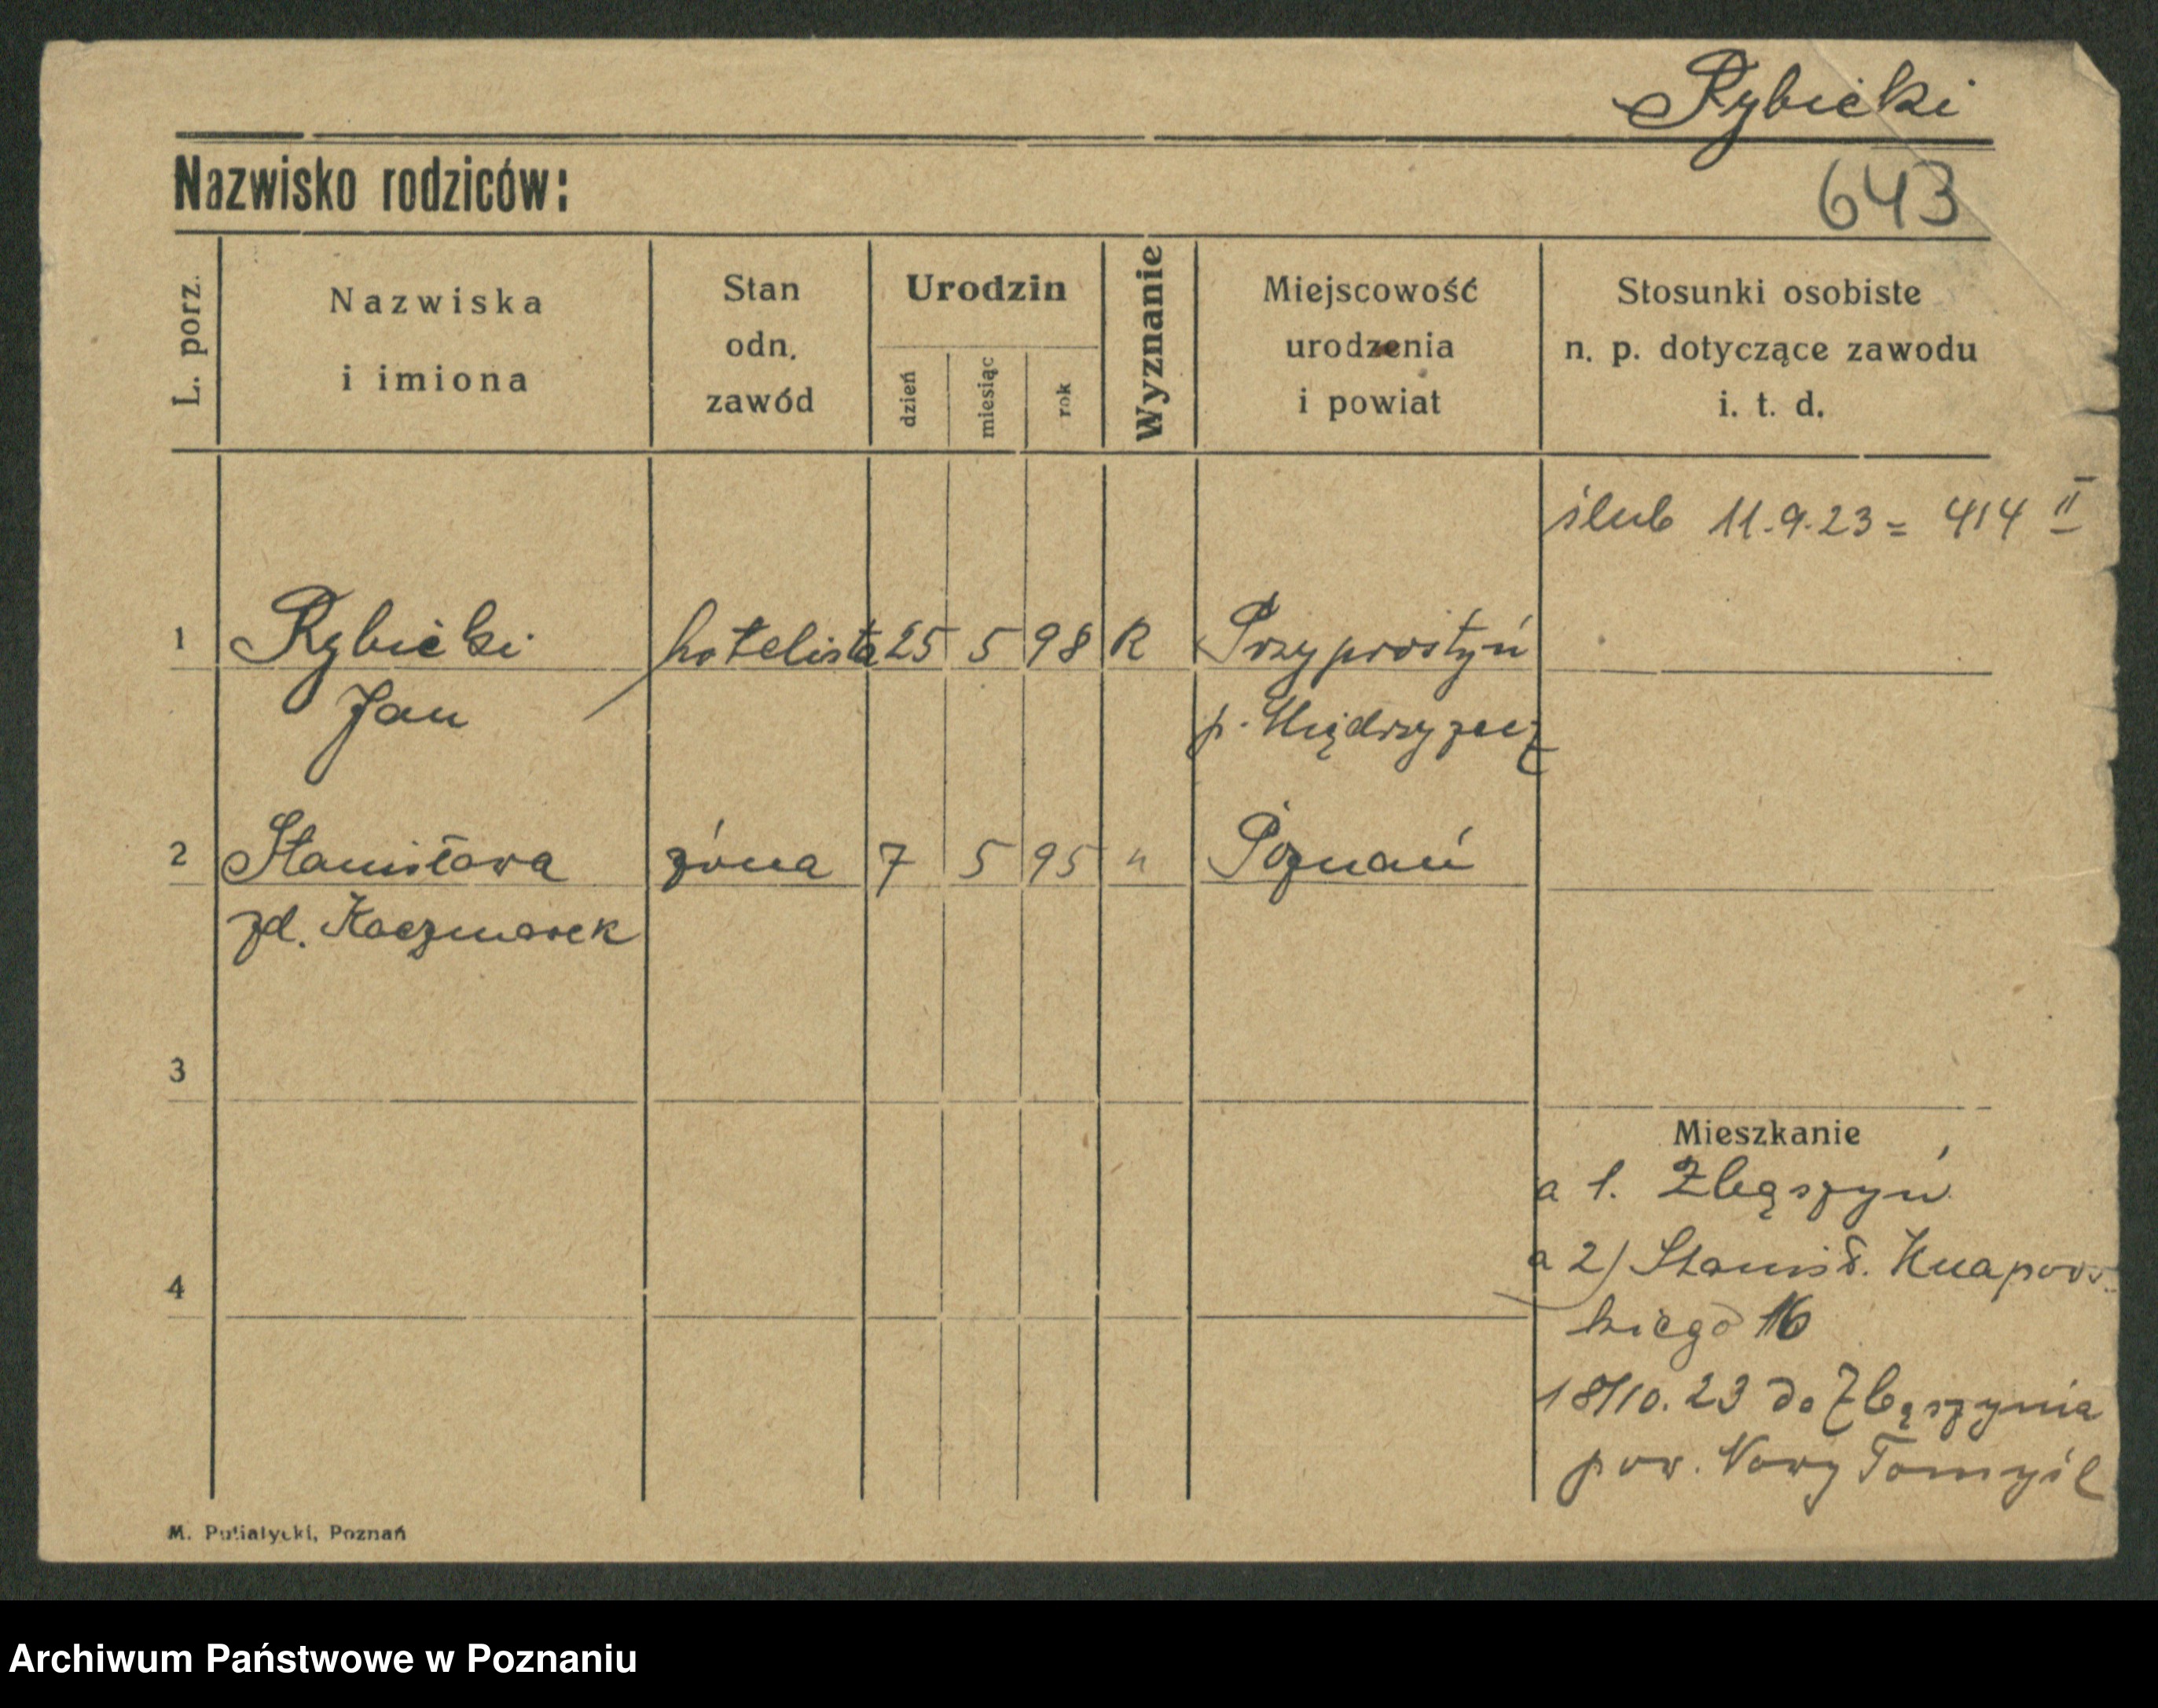 Rybicki
Nazwisko rodziców:
643
L. porz.
Nazwiska
i imiona
Stan
odn.
zawód
Urodzin
dzień
miesiąc
rok
Wyznanie
Miejscowość
urodzenia
i powiat
Stosunki osobiste
n. p. dotyczące zawodu
i. t. d.
ślub 11.9.23 = 414 II
1 Rybicki hotelista 25 5 98 R Przyprostyń
Jan p. Międzyrzecz
2 Stanisława żóna 7 5 95 " Poznań
zd. Kaczmarek
3
Mieszkanie
a 1. Zbąszyń
a 2) Stanisł. Knapows
4
kiego 16
18/10.23 do Zbąszynia
pow. Nowy Tomyśl
M. Putiatycki, Poznań
Archiwum Państwowe w Poznaniu